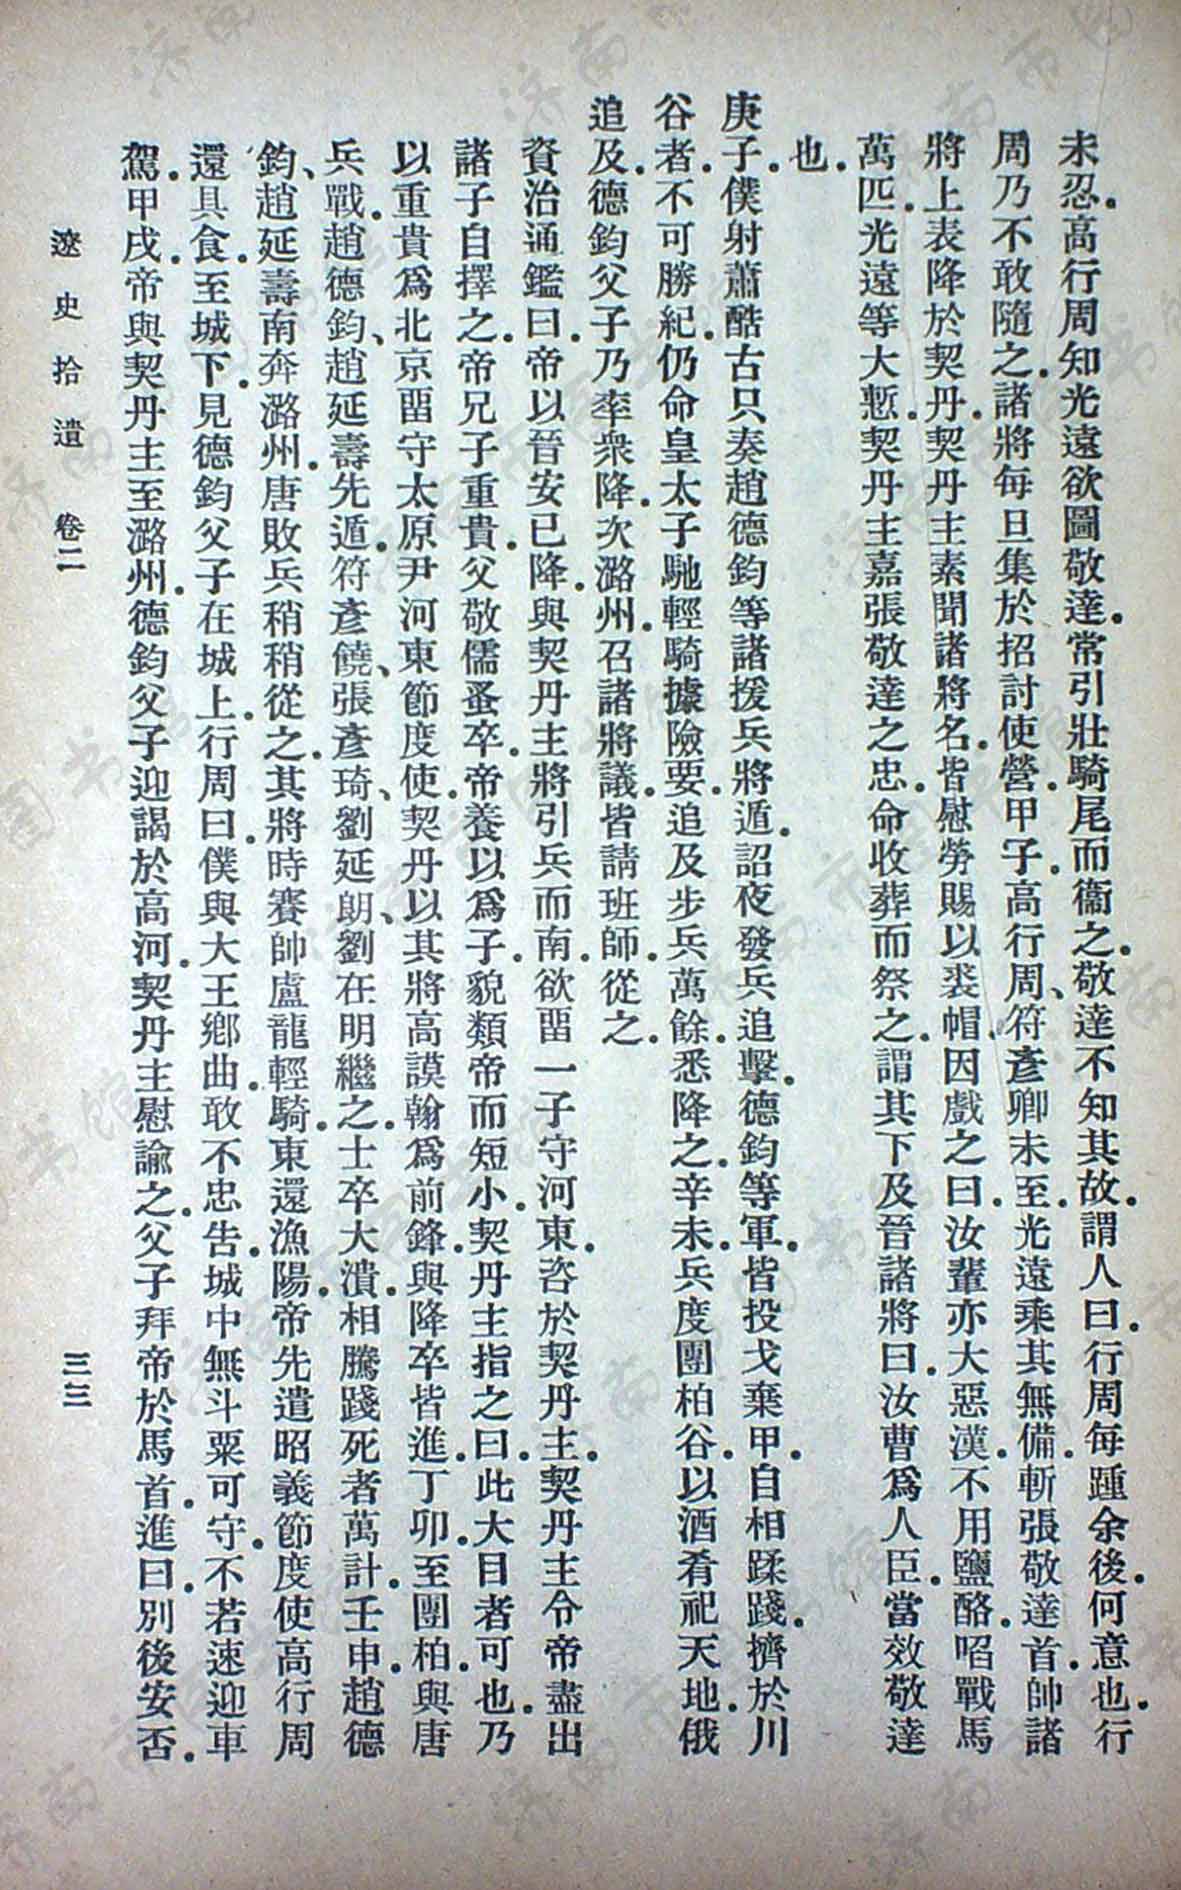 未忍。高行周知光遠欲圖敬達。常引壯騎尾而衞之。敬達不知其故。謂人曰。行周每踵余後。何意也。行
周乃不敢隨之。諸將每旦集於招討使營。甲子。高行周、符彥卿未至。光遠乘其無備。斬張敬達首。帥諸
將上表降於契丹。契丹主素聞諸將名。皆慰勞賜以裘帽。因戲之曰。汝輩亦大惡漢。不用鹽酪啗戰馬
萬匹。光遠等大慙。契丹主嘉張敬達之忠。命收葬而祭之。謂其下及晉諸將曰。汝曹爲人臣。當效敬達
也。
庚子。僕射蕭酷古只奏趙德鈞等諸援兵將遁。詔夜發兵追擊。德鈞等軍。皆投戈棄甲。自相蹂踐。擠於川
谷者。不可勝紀。仍命皇太子馳輕騎據險要。追及步兵萬餘。悉降之。辛未。兵度團柏谷。以酒肴祀天地。俄
追及。德鈞父子。乃率衆降。次潞州。召諸將議。皆請班師。從之。
資治通鑑曰。帝以晉安已降。與契丹主將引兵而南。欲畱一子守河東。咨於契丹主。契丹主令帝盡出
諸子自擇之。帝兄子重貴。父敬儒蚤卒。帝養以爲子。貌類帝而短小。契丹主指之曰。此大目者可也。乃
以重貴爲北京畱守太原尹河東節度使。契丹以其將高謨翰爲前鋒。與降卒皆進。丁卯。至團柏。與唐
兵戰。趙德鈞、趙延壽先遁。符彥饒、張彥琦、劉延朗、劉在明繼之。士卒大潰。相騰踐死者萬計。壬申。趙德
鈞、趙延壽南奔潞州。唐敗兵稍稍從之。其將時賽帥盧龍輕騎。東還漁陽。帝先遣昭義節度使高行周
還具食。至城下。見德鈞父子在城上。行周曰。僕與大王鄉曲。敢不忠告。城中無斗粟可守。不若速迎車
駕。甲戌。帝與契丹主至潞州。德鈞父子迎謁於高河。契丹主慰諭之。父子拜帝於馬首。進曰。別後安否。
遼史拾遺 卷二 三三
济南市图书馆